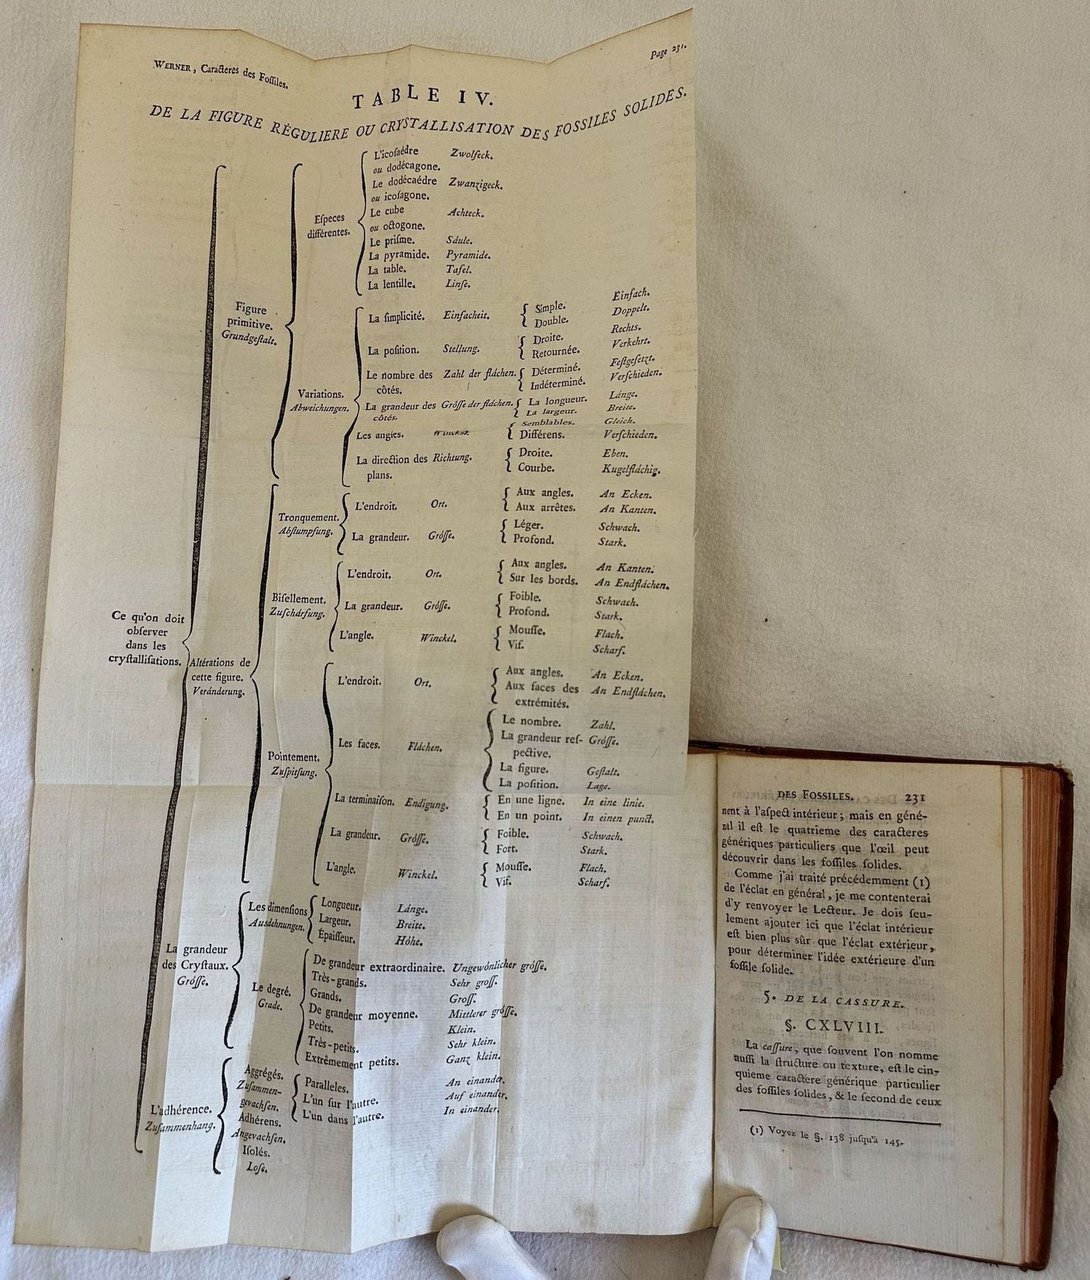 WERNER, Caracteres des Fossiles.
Page 231.
TABLE IV.
DE LA FIGURE RÉGULIERE OU CRYSTALLISATION DES FOSSILES SOLIDES.
Ce qu'on doit
observer
dans les
crystallisations.
Figure
primitive.
Grundgestalt.
Especes
différentes.
L'icosaédre Zwolfeck.
ou dodécagone.
Le dodécaédre Zwanzigeck.
ou icosagone.
Le cube Achteck.
ou octogone.
Le prisme. Säule.
La pyramide. Pyramide.
La table. Tafel.
La lentille. Linse.
Variations.
Abweichungen.
La simplicité. Einfacheit.
Simple. Einfach.
Double. Doppelt.
La position. Stellung.
Droite. Rechts.
Retournée. Verkehrt.
Le nombre des Zahl der flächen.
côtés.
Déterminé. Festgesetzt.
Indéterminé. Verschieden.
La grandeur des Grösse der flächen.
côtés.
La longueur. Länge.
La largeur. Breite.
Les angles. Winckel.
Semblables. Gleich.
Différens. Verschieden.
La direction des Richtung.
plans.
Droite. Eben.
Courbe. Kugelflächig.
Altérations de
cette figure.
Veränderung.
Tronquement.
Abstumpfung.
L'endroit. Ort.
Aux angles. An Ecken.
Aux arrêtes. An Kanten.
La grandeur. Grösse.
Léger. Schwach.
Profond. Stark.
Bisellement.
Zuschärfung.
L'endroit. Ort.
Aux angles. An Kanten.
Sur les bords. An Endflächen.
La grandeur. Grösse.
Foible. Schwach.
Profond. Stark.
L'angle. Winckel.
Mousse. Flach.
Vif. Scharf.
Pointement.
Zuspitsung.
L'endroit. Ort.
Aux angles. An Ecken.
Aux faces des An Endflächen.
extrémités.
Les faces. Flächen.
Le nombre. Zahl.
La grandeur res- Grösse.
pective.
La figure. Gestalt.
La position. Lage.
La terminaison. Endigung.
En une ligne. In eine linie.
En un point. In einen punct.
La grandeur. Grösse.
Foible. Schwach.
Fort. Stark.
L'angle. Winckel.
Mousse. Flach.
Vif. Scharf.
La grandeur
des Crystaux.
Grösse.
Les dimensions
Ausdehnungen.
Longueur. Länge.
Largeur. Breite.
Épaisseur. Höhe.
Le degré.
Grade.
De grandeur extraordinaire. Ungewönlicher grösse.
Très-grands. Sehr gross.
Grands. Gross.
De grandeur moyenne. Mittlerer grösse.
Petits. Klein.
Très-petits. Sehr klein.
Extrêmement petits. Ganz klein.
L'adhérence.
Zusammenhang.
Aggrégés.
Zusammen-
gevachsen.
Paralleles. An einander.
L'un sur l'autre. Auf einander.
L'un dans l'autre. In einander.
Adhérens.
Angevachsen.
Isolés.
Lose.
DES FOSSILES. 231
nent à l'aspect intérieur; mais en géné-
ral il est le quatrieme des caracteres
génériques particuliers que l'œil peut
découvrir dans les fossiles solides.
Comme j'ai traité précédemment (1)
de l'éclat en général, je me contenterai
d'y renvoyer le Lecteur. Je dois seu-
lement ajouter ici que l'éclat intérieur
est bien plus sûr que l'éclat extérieur,
pour déterminer l'idée extérieure d'un
fossile solide.
5. DE LA CASSURE.
§. CXLVIII.
La cassure, que souvent l'on nomme
aussi la structure ou texture, est le cin-
quieme caractere générique particulier
des fossiles solides, & le second de ceux
(1) Voyez le §. 138 jusqu'à 145.